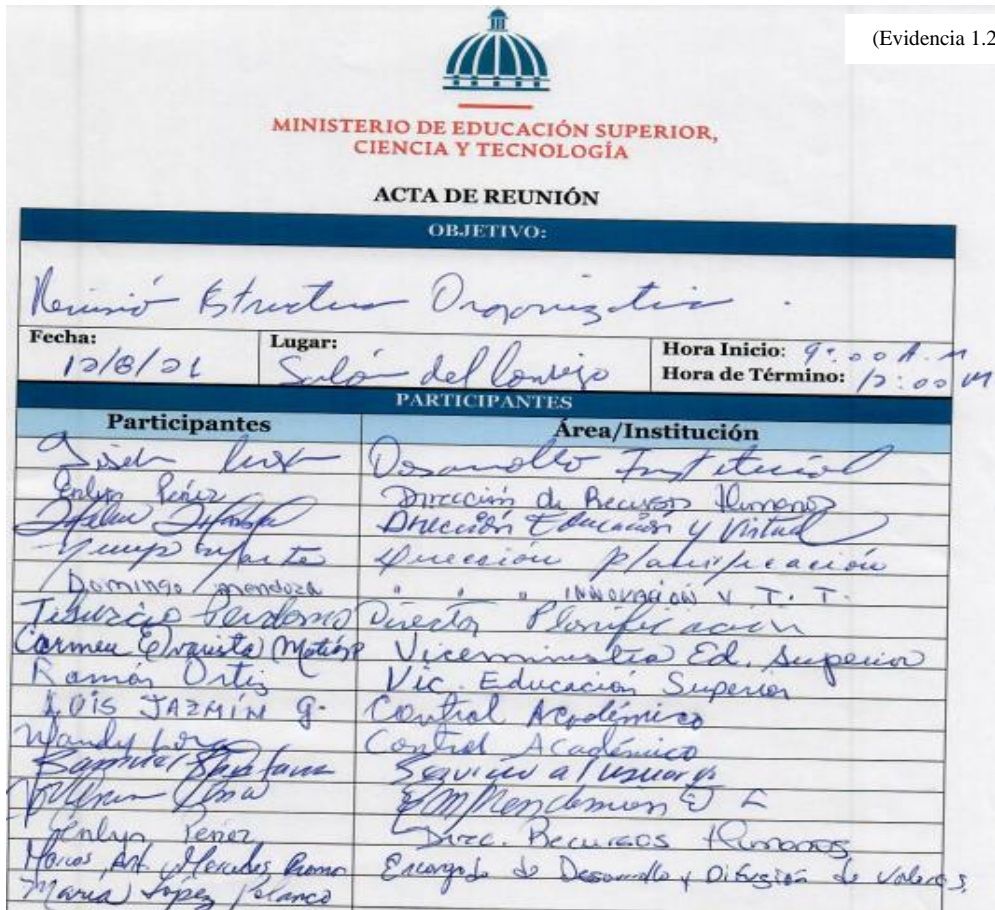 (Evidencia 1.2
MINISTERIO DE EDUCACIÓN SUPERIOR,
CIENCIA Y TECNOLOGÍA
ACTA DE REUNIÓN
OBJETIVO:
Reunió Estructura Organizativa.
Fecha: Lugar: Hora Inicio: 9:00 A.M
12/8/21 Salón del Consejo Hora de Término: 12:00 M
PARTICIPANTES
Participantes Área/Institución
Desarrollo Institucional
Enlyn Pérez Dirección de Recursos Humanos
Dirección Educación y Virtual
Dirección Planificación
Domingo Mendoza " " " INNOVACIÓN Y T. T.
Tiburcio Perdomo Director Planificación
Carmen Evarista Matías Viceministra Ed. Superior
Ramón Ortiz Vic. Educación Superior
LUIS JAZMÍN G. Control Académico
Wandy Control Académico
Santana Servicio al usuario
Enlyn Pérez Direc. Recursos Humanos
Marcos Ant. Mercedes Encargado de Desarrollo y Difusión de Valores,
María López Polanco